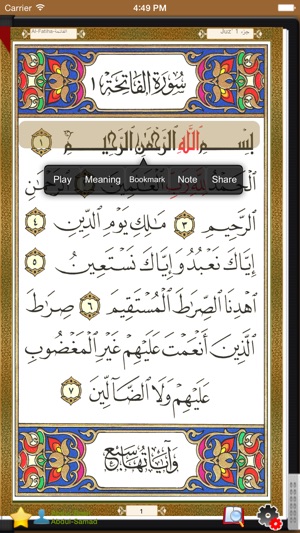 Carrier 4:49 PM
Al-Fatiha-الفاتحة Juz' 1 جزء
سُورَةُ الفَاتِحَة ١
بِسْمِ اللَّهِ الرَّحْمَٰنِ الرَّحِيمِ ١
Play Meaning Bookmark Note Share
الرَّحِيمِ ٣ مَالِكِ يَوْمِ الدِّينِ
٤ إِيَّاكَ نَعْبُدُ وَإِيَّاكَ نَسْتَعِينُ ٥
اهْدِنَا الصِّرَاطَ الْمُسْتَقِيمَ ٦ صِرَاطَ
الَّذِينَ أَنْعَمْتَ عَلَيْهِمْ غَيْرِ الْمَغْضُوبِ
عَلَيْهِمْ وَلَا الضَّالِّينَ ٧
وَآيَاتُهَا سَبْعٌ
1
Abdul-Samad